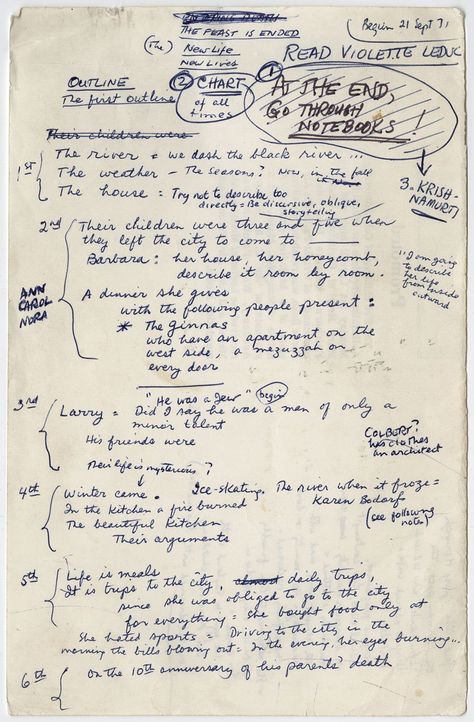 THE FEAST IS ENDED
(Begun 21 Sept 71
(The) New Life
New Lives
READ VIOLETTE LEDUC
OUTLINE
The first outline
② CHART
of all
times
①
AT THE END,
GO THROUGH
NOTEBOOKS!
3. KRISH-
NAMURTI
Their children were
1st
The river = we dash the black river ...
The weather - The seasons? Now, in the fall
The house = Try not to describe too
directly = Be discursive, oblique,
storytelling
2nd
Their children were three and five when
they left the city to come to ______
Barbara: her house, her honeycomb,
describe it room by room.
"I am going
to describe
her life
from inside
outward
ANN
CAROL
NORA
A dinner she gives
with the following people present =
* The Ginnas
who have an apartment on the
west side, a mezuzzah on
every door
3rd
"He was a Jew" begin
Larry = Did I say he was a man of only a
minor talent
His friends were
COLBERT?
was clothes
an architect
Their life is mysterious?
4th
Winter came. Ice-skating. The river when it froze =
In the kitchen a fire burned
Karen Bodarf
The beautiful kitchen
(see following
notes)
Their arguments
5th
Life is meals
It is trips to the city, almost daily trips,
since she was obliged to go to the city
for everything = she bought food only at
She hated sports = Driving to the city in the
morning the bills blowing out = In the evening, her eyes burning...
6th
On the 10th anniversary of his parents' death